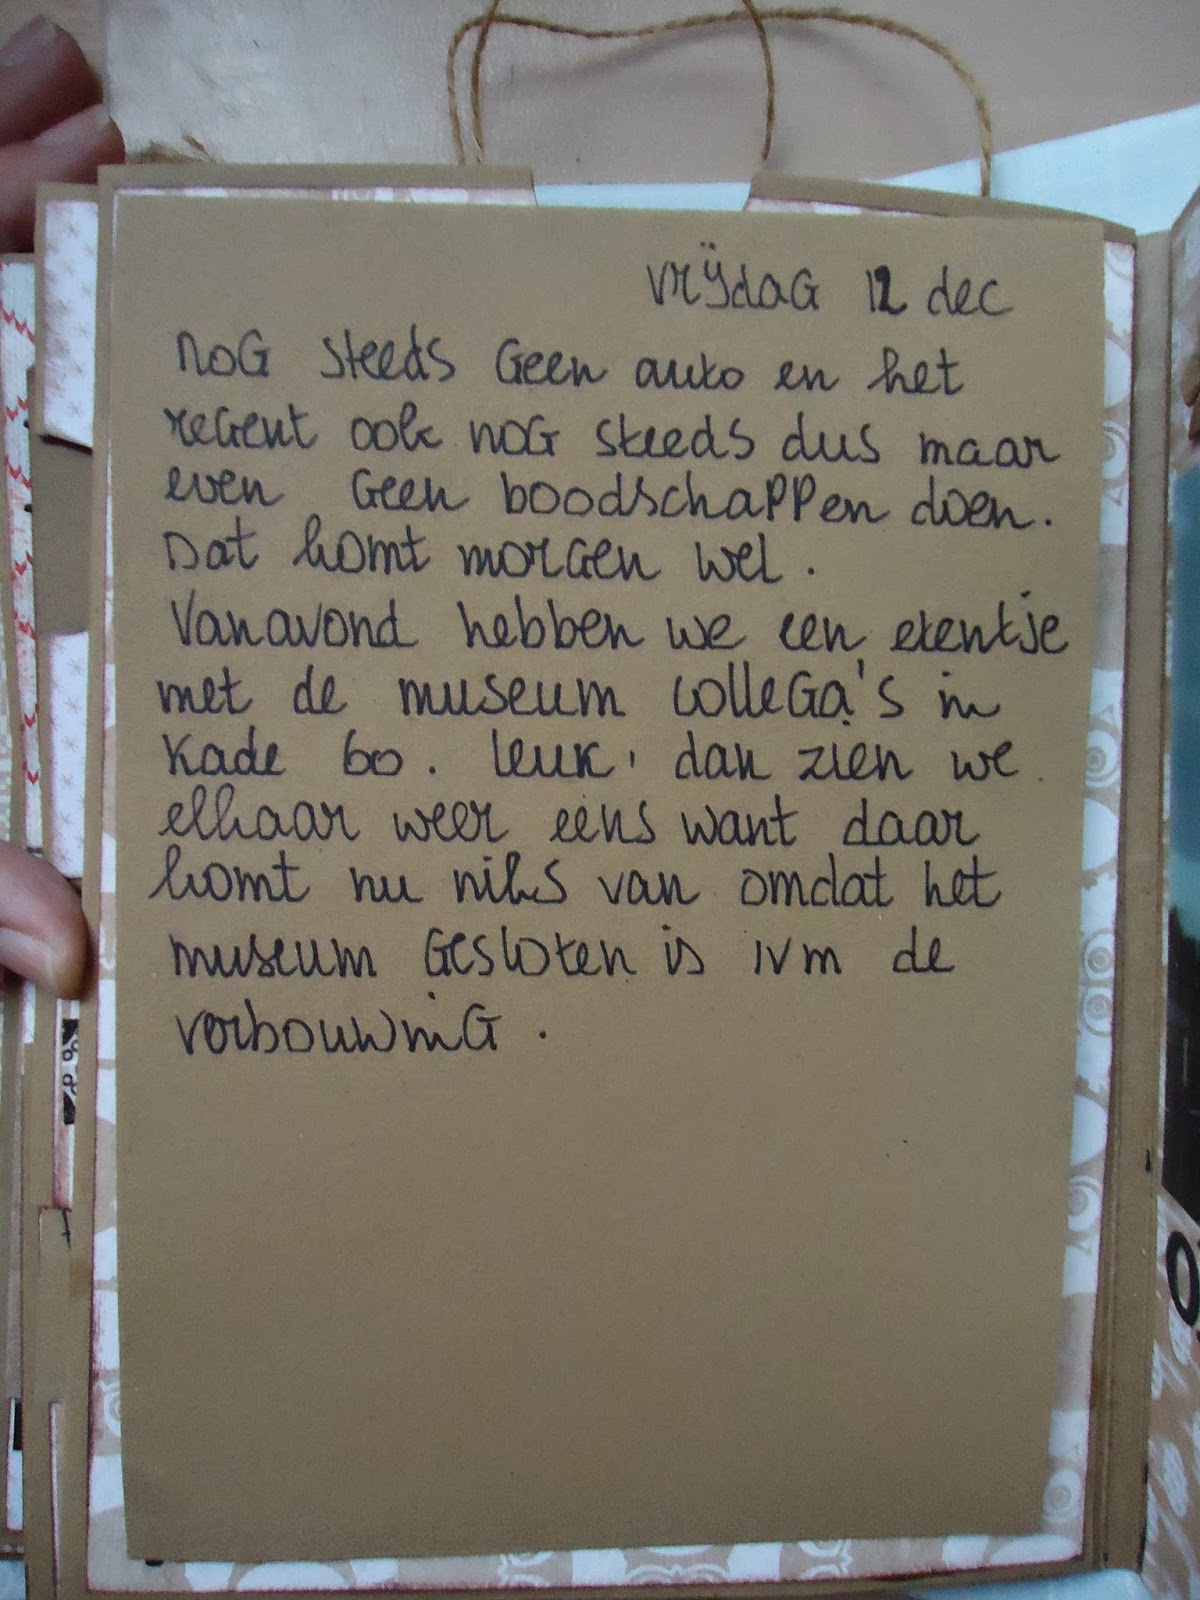 vrijdag 12 dec
nog steeds geen auto en het
regent ook nog steeds dus maar
even geen boodschappen doen.
Dat komt morgen wel.
Vanavond hebben we een etentje
met de museum collega's in
Kade 60. leuk, dan zien we
elkaar weer eens want daar
komt nu niks van omdat het
museum gesloten is ivm de
verbouwing.